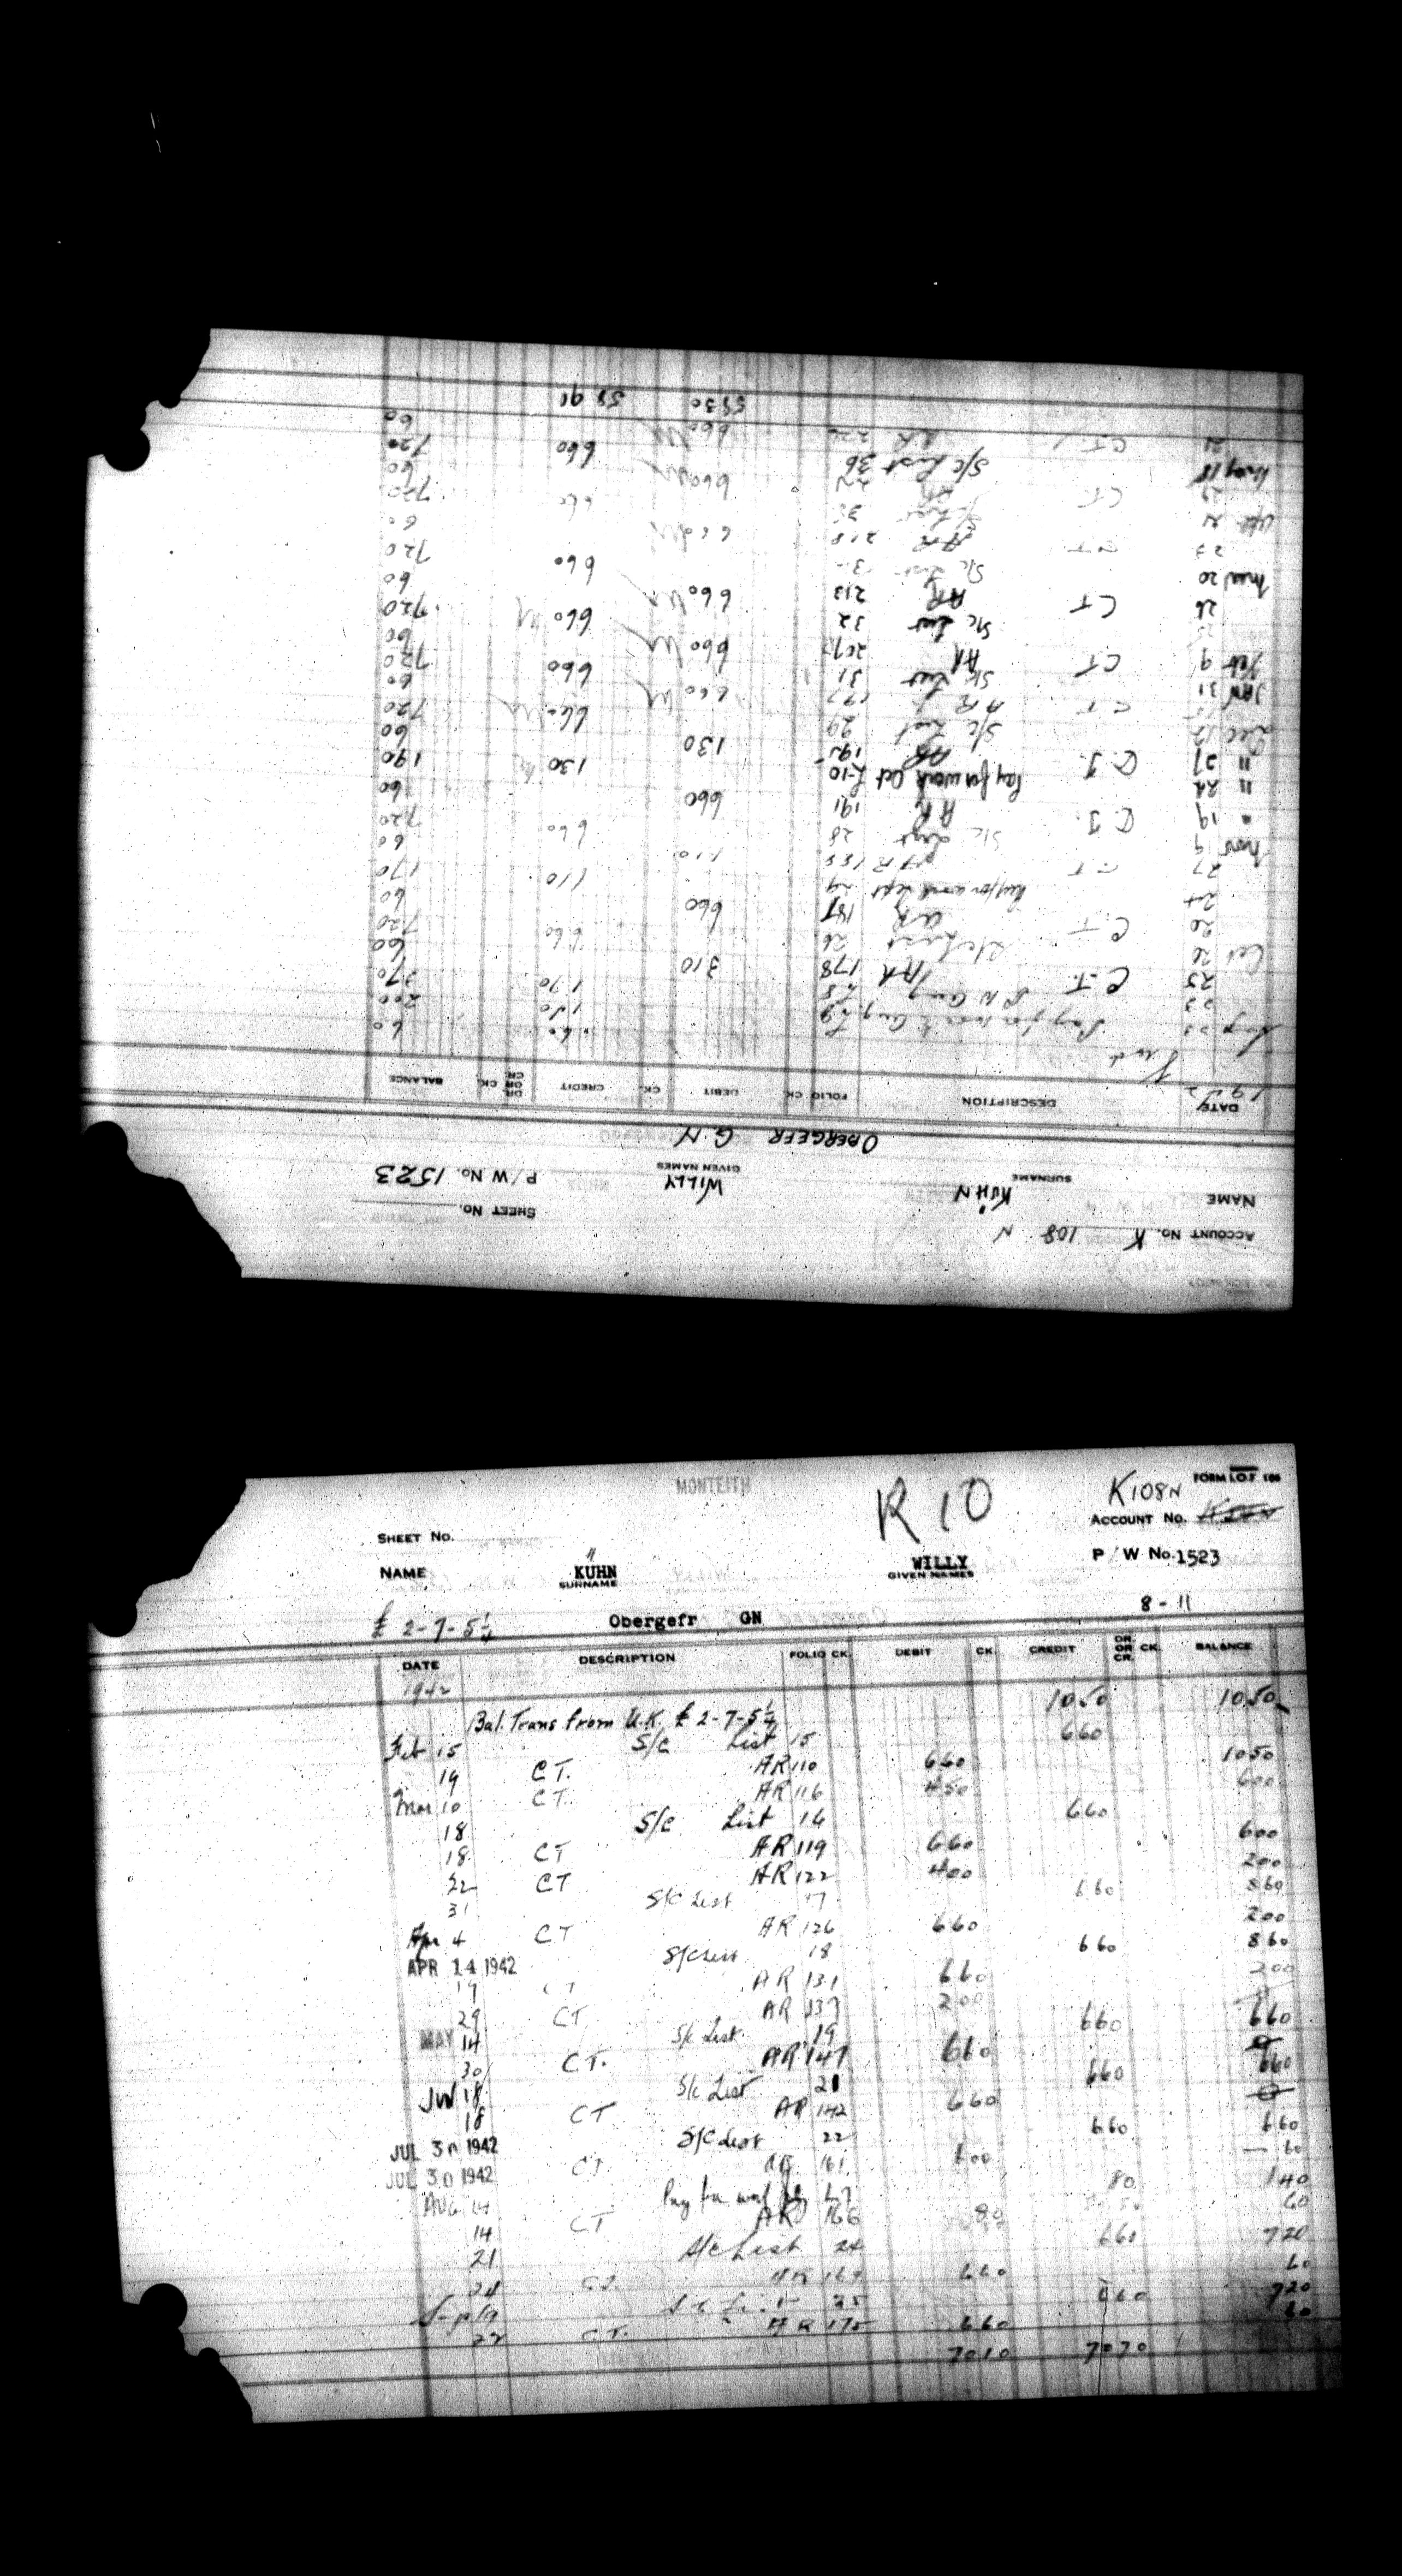 ACCOUNT No. K 108 N
SHEET No.
NAME KÜHN WILLY P/W No. 1523
SURNAME GIVEN NAMES
OBERGEFR G.N
DATE DESCRIPTION FOLIO CK. DEBIT CK. CREDIT DR. OR CR. CK. BALANCE
1942
Fwd 60 60
Sep 23 Pay for work Aug L9 200
23 P W Aug L8 170 370
25 C.T. AR 178 310 60
Oct 20 S/c List 26 660 720
20 C T AR 187 660 60
24 Pay for work Sept 110 170
27 C T AR 110 60
Nov 9 S/c List 28 660 720
" 19 C.T. AR 191 660 60
" 24 Pay for work Oct L-10 130 190
" 27 C.T. AR 195 130 60
Dec 12 S/c List 29 660 720
C T AR 197 660 60
JAN 31 S/c List 31 660 720
Feb 9 C T AR 207 660 60
S/c List 32 660 720
26 C T AR 213 660 60
Mar 20 S/c List 660 720
23 C T AR 218 660 60
Apr 21 S/c List 35 660 720
29 C T AR 660 60
May 18 S/c List 36 660 720
21 C T AR 660 60
5830 5891
MONTEITH R10 K108N FORM I.O.F. 106
SHEET No. ACCOUNT No.
NAME KÜHN WILLY P/W No. 1523
SURNAME GIVEN NAMES
£ 2-7-5½ Obergefr GN 8-11
DATE DESCRIPTION FOLIO CK. DEBIT CK. CREDIT DR. OR CR. CK. BALANCE
1942
Bal. Trans from U.K. £ 2-7-5½ 1050 1050
Feb 15 S/c List 15 660
19 C.T. AR 110 660 1050
Mar 10 C T. AR 116 450 600
18 S/c List 16 660
18 C T AR 119 660 600
22 C T AR 122 400 200
31 S/c List 17 660 860
Apr 4 C T AR 126 660 200
APR 14 1942 S/c List 18 660 860
17 C T AR 131 660 200
29 C T AR 137 200
MAY 14 S/c List 19 660 660
30 C T. AR 147 660 0
JUN 18 S/c List 21 660 660
18 C T AR 142 660 0
JUL 30 1942 S/c List 22 660 660
JUL 30 1942 C T AR 161 600 60
AUG 14 Pay for work L7 80 140
14 C T AR 166 80 60
21 S/c List 24 660 720
24 C T. AR 169 660 60
Sep 19 S/c List 25 660 720
22 C T. AR 175 660 60
7010 7070